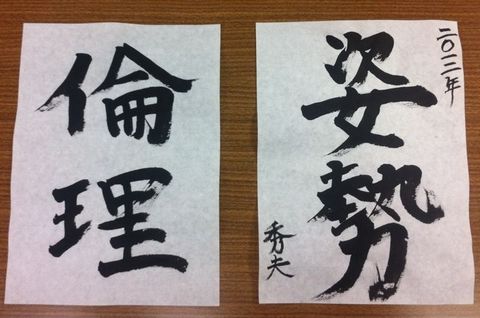 二〇一二年
姿勢
秀夫
倫理